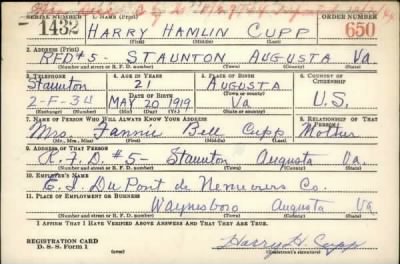 SERIAL NUMBER 1. NAME (Print) ORDER NUMBER
1432 HARRY HAMLIN CUPP 650
(First) (Middle) (Last)
2. ADDRESS (Print)
RFD #5- STAUNTON AUGUSTA Va.
(Number and street or R. F. D. number) (Town) (County) (State)
3. TELEPHONE 4. AGE IN YEARS 5. PLACE OF BIRTH 6. COUNTRY OF CITIZENSHIP
Staunton 21 AUGUSTA
DATE OF BIRTH (Town or county)
2-F-34 MAY 20 1919 Va U.S.
(Exchange) (Number) (Mo.) (Day) (Yr.) (State or country)
7. NAME OF PERSON WHO WILL ALWAYS KNOW YOUR ADDRESS 8. RELATIONSHIP OF THAT PERSON
Mrs. Fannie Bell Cupp Mother
(Mr., Mrs., Miss) (First) (Middle) (Last)
9. ADDRESS OF THAT PERSON
R.F.D. #5- Staunton Augusta Va.
(Number and street or R. F. D. number) (Town) (County) (State)
10. EMPLOYER'S NAME
E.I. DuPont de Nemuers Co.
11. PLACE OF EMPLOYMENT OR BUSINESS
Waynesboro Augusta Va
(Number and street or R. F. D. number) (Town) (County) (State)
I AFFIRM THAT I HAVE VERIFIED ABOVE ANSWERS AND THAT THEY ARE TRUE.
REGISTRATION CARD
D. S. S. Form 1 (over) Harry H. Cupp
(Registrant's signature)